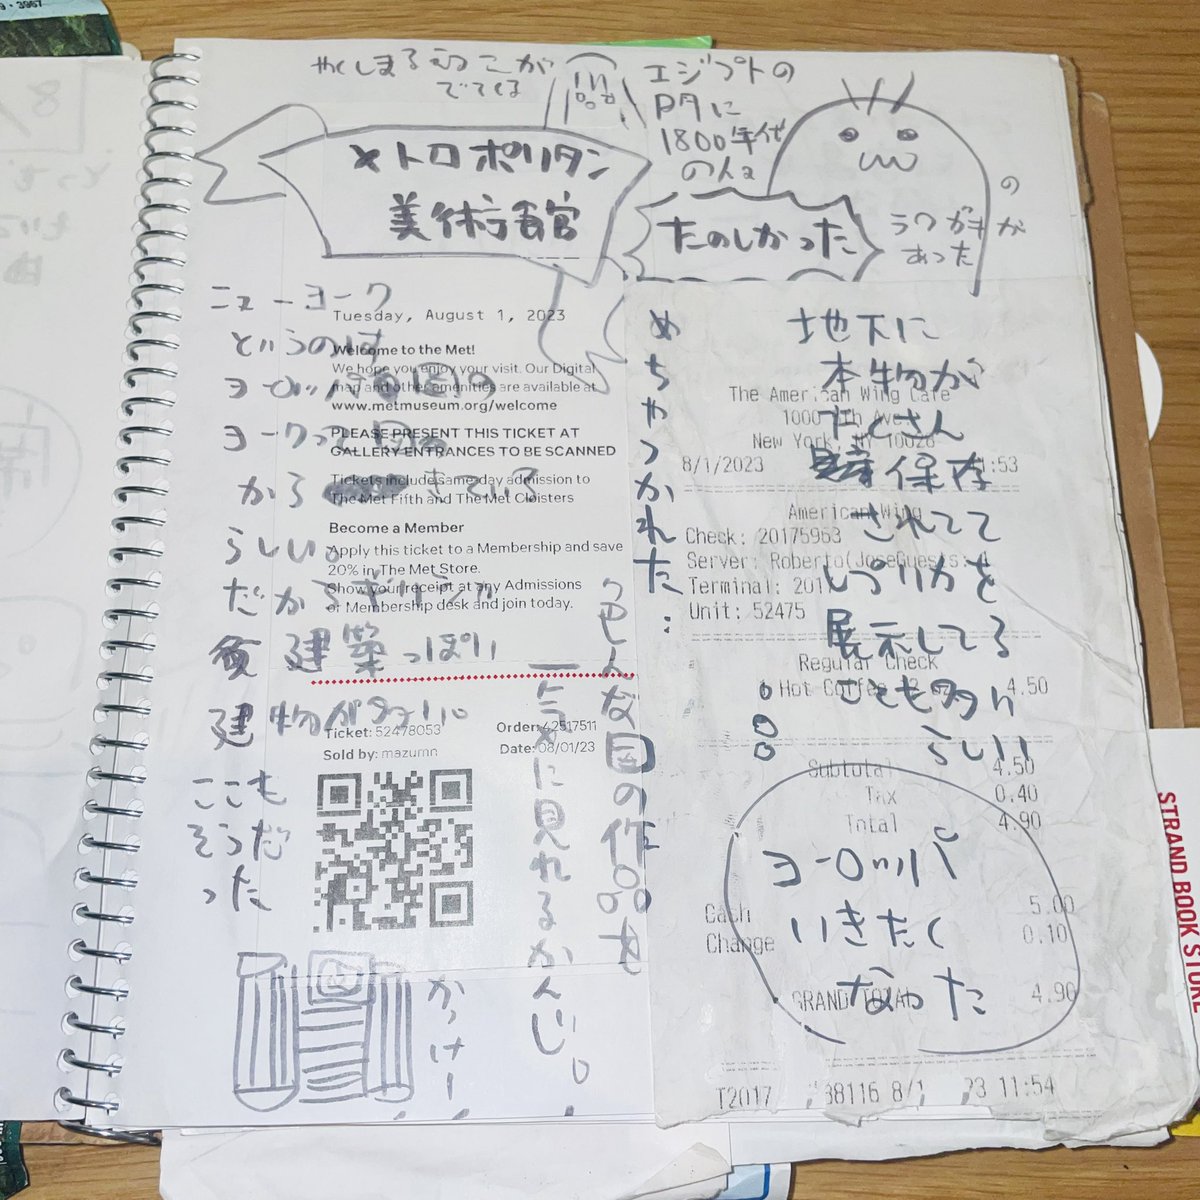 やくしまるえつこが
でてくる
エジプトの
門に
1800年代
の人の
ラクガキが
あった
メトロポリタン
美術館
たのしかった
ニューヨーク
というのは
ヨーロッパ
ヨークって
から
らしい。
だからギリシャ
建築っぽい
建物が多い。
ここも
そうだ
った
かっけー
いろんな国の作品を
一気に見れるかんじ。
めちゃつかれた
地下に
本物が
たくさん
保存
されてて
レプリカを
展示してる
ことも多い
らしい!
ヨーロッパ
いきたく
なった
Tuesday, August 1, 2023
Welcome to the Met!
We hope you enjoy your visit. Our Digital
map and other amenities are available at
www.metmuseum.org/welcome
PLEASE PRESENT THIS TICKET AT
GALLERY ENTRANCES TO BE SCANNED
Tickets include same-day admission to
The Met Fifth and The Met Cloisters
Become a Member
Apply this ticket to a Membership and save
20% in The Met Store.
Show your receipt at any Admissions
or Membership desk and join today.
Ticket: 52478053
Order: 42517511
Sold by: mazumn
Date: 08/01/23
The American Wing Cafe
1000 5th Ave
New York, NY 10028
8/1/2023
American Wing
Check: 20175963
Server: Roberto(Jose
Guests: 4
Terminal: 201
Unit: 52475
Regular Check
Hot Coffee
4.50
Subtotal 4.50
Tax 0.40
Total 4.90
Cash 5.00
Change 0.10
GRAND TOTAL 4.90
T2017
88116 8/1
23 11:54
STRAND BOOK STORE
3967